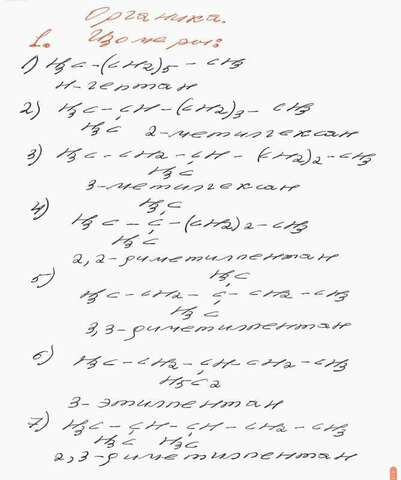 Органика.
1. Изомеры:
1) H3C-(CH2)5-CH3
н-гептан
2) H3C-CH-(CH2)3-CH3
H3C 2-метилгексан
3) H3C-CH2-CH-(CH2)2-CH3
H3C
3-метилгексан
H3C
4) H3C-C-(CH2)2-CH3
H3C
2,2-диметилпентан
H3C
5) H3C-CH2-C-CH2-CH3
H3C
3,3-диметилпентан
6) H3C-CH2-CH-CH2-CH3
H5C2
3-этилпентан
7) H3C-CH-CH-CH2-CH3
H3C H3C
2,3-диметилпентан